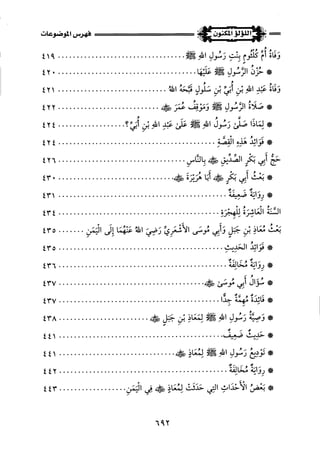 فهرس الموضوعات
اللؤلؤ المكنون
وَفَاةُ أُمِّ كُلْثُومٍ بِنْتِ رَسُولِ اللهِ ﷺ ٤١٩
* حُزْنُ الرَّسُولِ ﷺ عَلَيْهَا ٤٢٠
وَفَاةُ عَبْدِ اللهِ بْنِ أُبَيِّ بْنِ سَلُولٍ قَبَّحَهُ اللهُ ٤٢١
* صَلَاةُ الرَّسُولِ ﷺ وَمَوْقِفُ عُمَرَ رضي الله عنه ٤٢٢
* لِمَاذَا صَلَّى رَسُولُ اللهِ ﷺ عَلَى عَبْدِ اللهِ بْنِ أُبَيٍّ؟ ٤٢٤
* فَوَائِدُ هَذِهِ الْقِصَّةِ ٤٢٤
حَجُّ أَبِي بَكْرٍ الصِّدِّيقِ رضي الله عنه بِالنَّاسِ ٤٢٦
* بَعْثُ أَبِي بَكْرٍ رضي الله عنه أَبَا هُرَيْرَةَ رضي الله عنه ٤٣٠
* رِوَايَةٌ ضَعِيفَةٌ ٤٣١
السَّنَةُ الْعَاشِرَةُ لِلْهِجْرَةِ ٤٣٤
بَعْثُ مُعَاذِ بْنِ جَبَلٍ وَأَبِي مُوسَى الْأَشْعَرِيِّ رَضِيَ اللهُ عَنْهُمَا إِلَى الْيَمَنِ ٤٣٥
* فَوَائِدُ الْحَدِيثِ ٤٣٥
* رِوَايَةٌ مُخَالِفَةٌ ٤٣٦
* سُؤَالُ أَبِي مُوسَى رضي الله عنه ٤٣٧
* فَائِدَةٌ مُهِمَّةٌ جِدًّا ٤٣٧
* وَصِيَّةُ رَسُولِ اللهِ ﷺ لِمُعَاذِ بْنِ جَبَلٍ رضي الله عنه ٤٣٨
* حَدِيثٌ ضَعِيفٌ ٤٤١
* تَوْدِيعُ رَسُولِ اللهِ ﷺ لِمُعَاذٍ رضي الله عنه ٤٤١
* رِوَايَةٌ مُخَالِفَةٌ ٤٤٢
* بَعْضُ الْأَحْدَاثِ الَّتِي حَدَثَتْ لِمُعَاذٍ رضي الله عنه فِي الْيَمَنِ ٤٤٣
٦٩٢